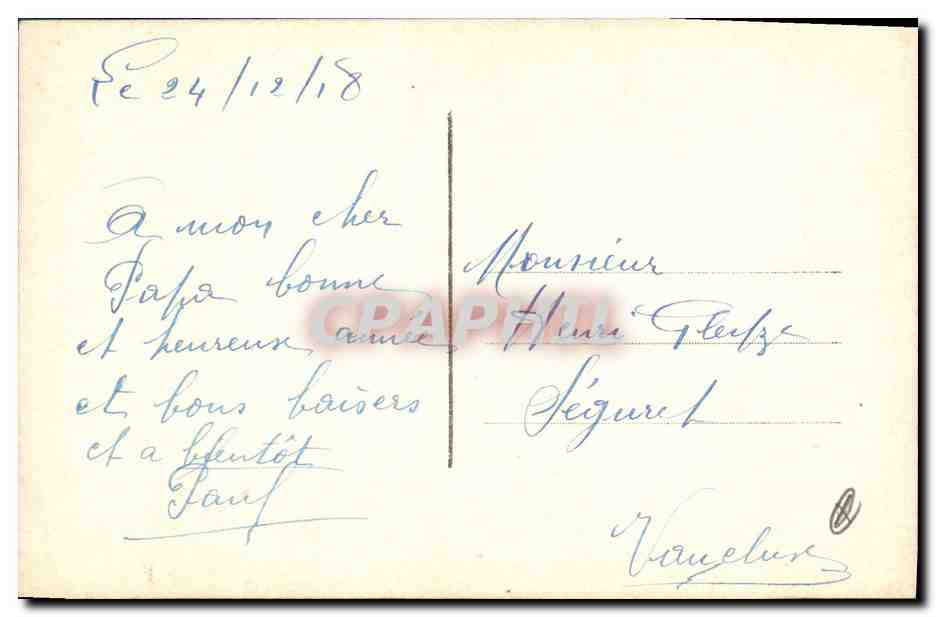 Le 24/12/18
A mon cher
Papa bonne
et heureuse année
et bons baisers
et a bientôt
Paul
Monsieur
Henri
Séguret
Vaucluse
CPAPHIL